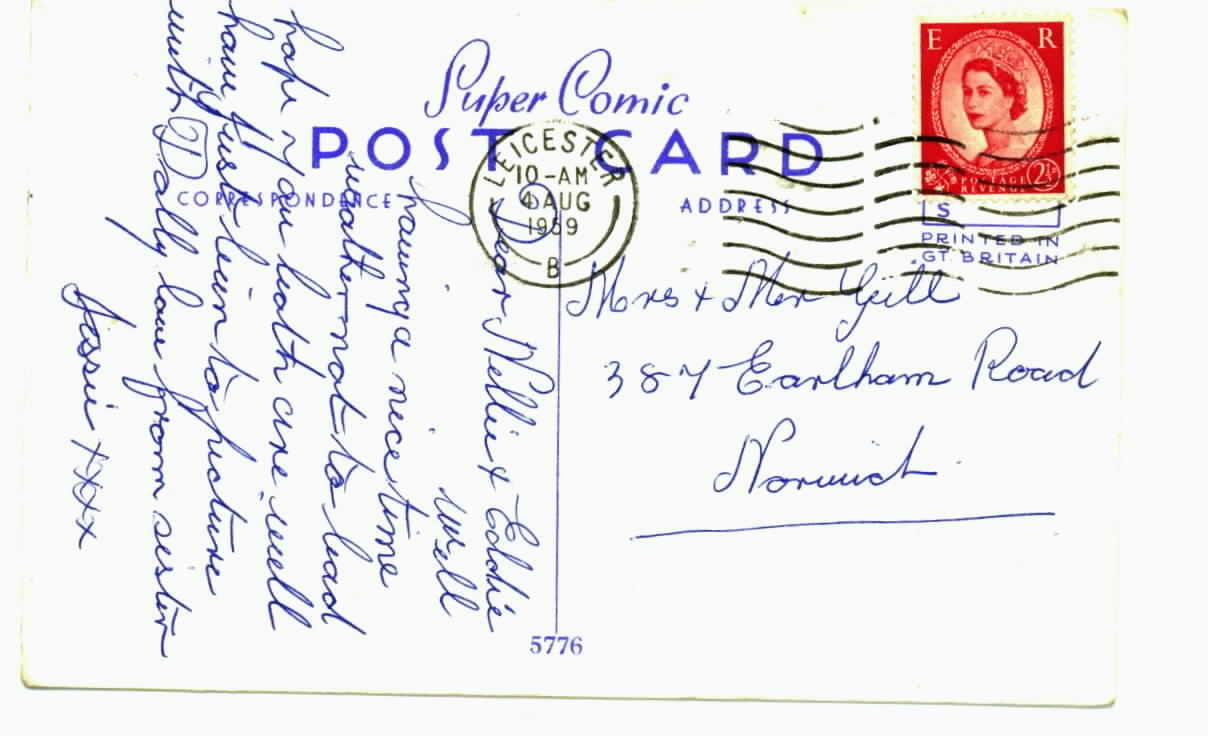 Super Comic
POST CARD
CORRESPONDENCE
ADDRESS
E R
POSTAGE
REVENUE
2½
S
PRINTED IN
GT BRITAIN
LEICESTER
10-AM
4 AUG
1959
B
Dear Nellie + Eddie
Well
having a nice time
weather not to bad
hope You both are well
have Just been to picture
with Dolly love from sister
Jessie xxxx
Mrs + Mr Gill
387 Earlham Road
Norwich
5776